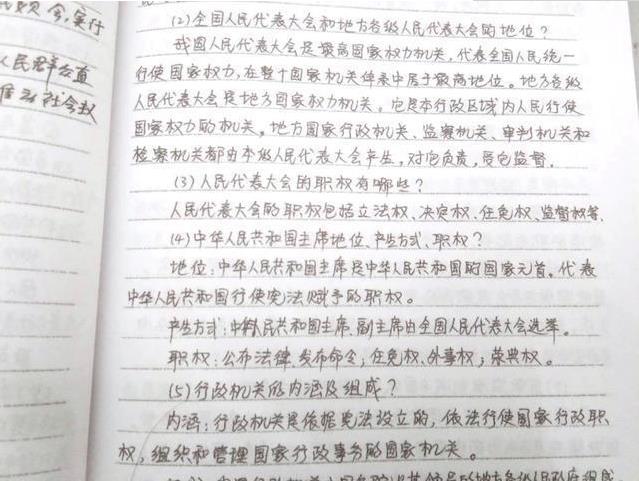 金,实行
人民群众直
社会权
(2)全国人民代表大会和地方各级人民代表大会的地位?
我国人民代表大会是最高国家权力机关,代表全国人民统一
行使国家权力,在整个国家机关体系中居于最高地位。地方各级
人民代表大会是地方国家权力机关。它是本行政区域内人民行使
国家权力的机关。地方国家行政机关、监察机关、审判机关和
检察机关都由本级人民代表大会产生,对它负责,受它监督.
(3)人民代表大会的职权有哪些?
人民代表大会的职权包括立法权、决定权、任免权、监督权等.
(4)中华人民共和国主席地位、产生方式、职权?
地位:中华人民共和国主席是中华人民共和国的国家元首。代表
中华人民共和国行使宪法赋予的职权。
产生方式:中华人民共和国主席、副主席由全国人民代表大会选举。
职权:公布法律、发布命令;任免权、外事权;荣典权。
(5)行政机关的内涵及组成?
内涵:行政机关是依据宪法设立的,依法行使国家行政职
权,组织和管理国家行政事务的国家机关。